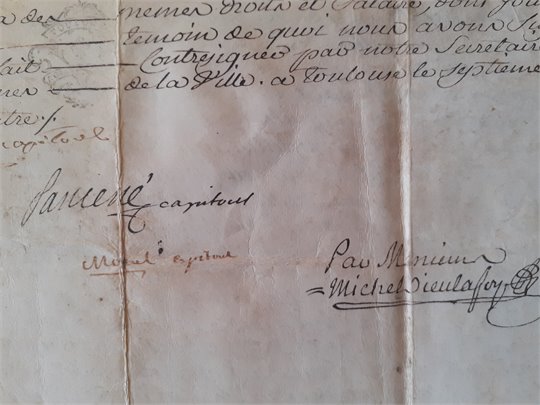 a des ——— nemes droits et salaire, dont jou
——— temoin de quoi nous avons Si
fait ——— Contresigner par notre Secretaire
mes ——— de la Ville. a Toulouse le Septieme
tre /.
capitoul
capitoul
Morel capitoul
Par Messieurs
= Michel Dieulafoy